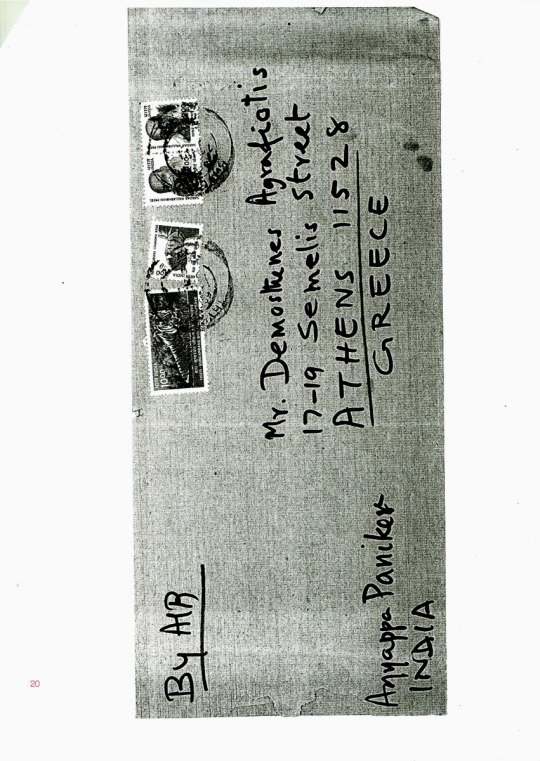 By AIR
Mr. Demosthenes Agrafiotis
17-19 Semelis street
ATHENS 11528
GREECE
Ayyappa Paniker
INDIA
20